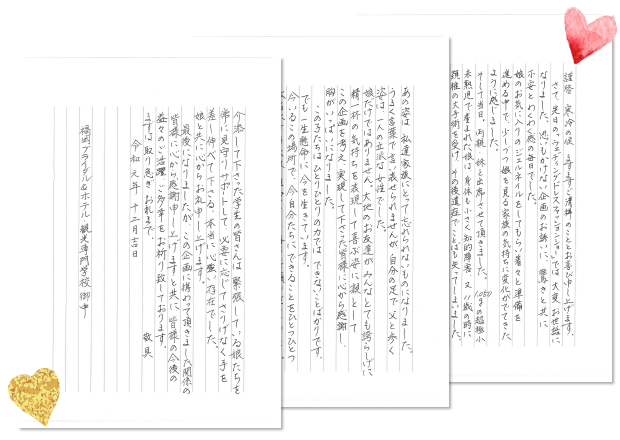 謹啓 寒冷の候 ますますご清祥のこととお喜び申し上げます。
さて、先日の「ウェディングドレスファッションショー」では大変お世話に
なりました。思いもかけない企画のお誘いに、驚きと共に
不安とわくわく感の毎日でした。
娘のお気に入りのジェルネイルをしてもらい着々と準備を
進める中で、少しづつ娘を見る家族の気持ちに変化がでてきた
ように感じました。
そして当日、両親、妹と出席させて頂きました。1,050gの超極小
未熟児で産まれた娘は、身体も小さく知的障害、又11歳の時に
頚椎の大手術を受け、その後遺症でことばも失ってしまいました。
あの姿は、私達家族にとって忘れられないものになりました。
うまく言葉で言い表せられませんが、自分の足で父と歩く
姿は一人の立派な女性でした。
娘だけではありません。大地のお友達がみんなとても誇らしげに
精一杯の気持ちを表現して喜ぶ姿に親として
この企画を考え、実現して下さった皆様に心から感謝し、
胸がいっぱいになりました。
この子たちは、ひとりひとりの力では できないことばかりです。
でも一生懸命に、今を生きています。
今いるこの場所で、今自分たちにできることをひとつひとつ
今、添って下さった学生の皆さんは緊張している娘たちを
常に見守りサポートして、必要に応じてさりげなく手を
差し伸べて下さる、本当に心強い存在でした。
娘と共に心からお礼申し上げます。
最後になりましたが、この企画に携わって頂きました関係の
皆様に心から感謝申し上げますと共に、皆様の今後の
益々のご活躍、ご多幸をお祈り致しております。
まずは取り急ぎお礼まで。
敬具
令和元年十二月吉日
福岡ブライダル&ホテル・観光専門学校 御中